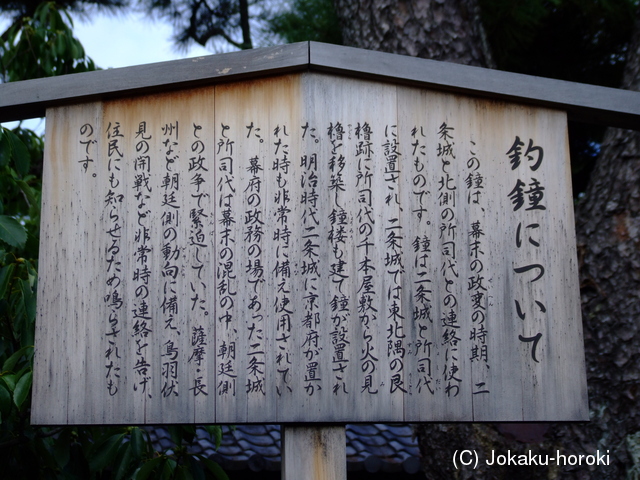 釣鐘について
この鐘は、幕末の政変の時期、二
条城と北側の所司代との連絡に使わ
れたものです。鐘は二条城と所司代
に設置され、二条城では東北隅の艮
櫓跡に所司代の千本屋敷から火の見
櫓を移築し鐘楼も建て鐘が設置され
た。明治時代二条城に京都府が置か
れた時も非常時に備え使用されてい
た。幕府の政務の場であった二条城
と所司代は幕末の混乱の中、朝廷側
との政争で緊迫していた。薩摩・長
州など朝廷側の動向に備え、鳥羽伏
見の開戦など非常時の連絡を告げ、
住民にも知らせるため鳴らされたも
のです。
(C) Jokaku-horoki